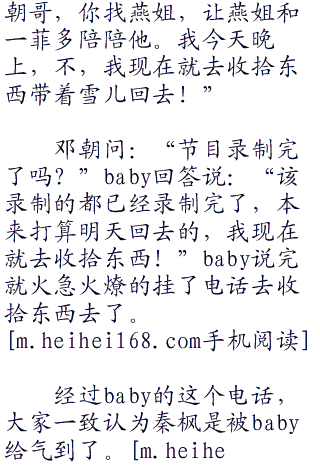 朝哥，你找燕姐，让燕姐和
一菲多陪陪他。我今天晚
上，不，我现在就去收拾东
西带着雪儿回去！”
邓朝问：“节目录制完
了吗？”baby回答说：“该
录制的都已经录制完了，本
来打算明天回去的，我现在
就去收拾东西！”baby说完
就火急火燎的挂了电话去收
拾东西去了。
[m.heihei168.com手机阅读]
经过baby的这个电话，
大家一致认为秦枫是被baby
给气到了。[m.heihe